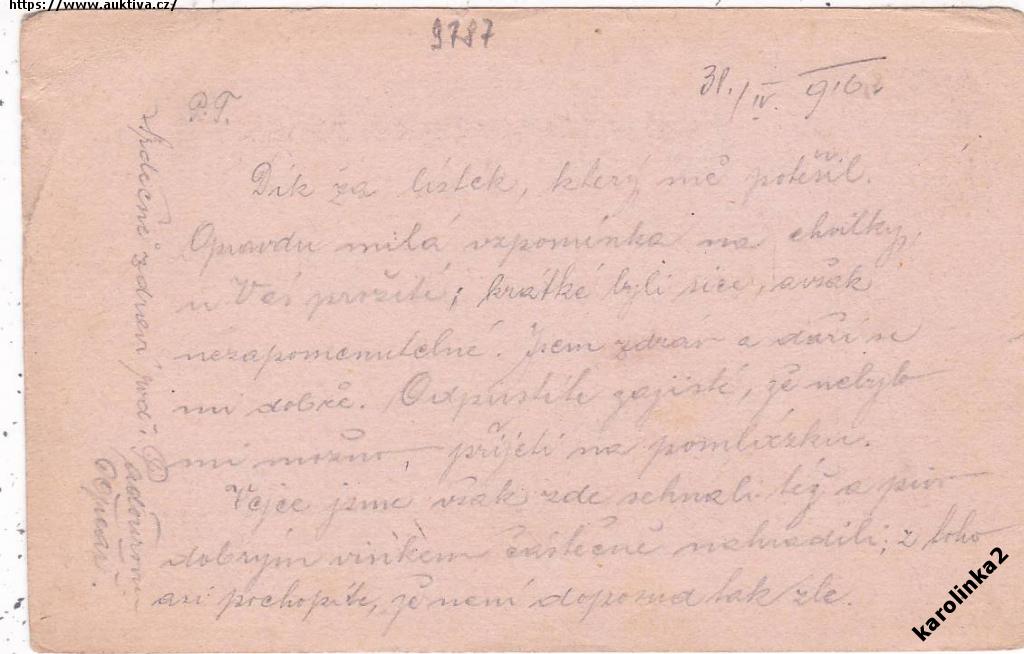 https://www.auktiva.cz/
9787
31./IV. 916
P.T.
Dík za lístek, který mě potěšil.
Opravdu milá vzpomínka na chvilky,
u Vás prožité; krátké byli sice, avšak
nezapomenutelné. Jsem zdráv a daří se
mi dobře. Odpustíte zajisté, že nebylo
mi možno přijeti na pomlázku.
Vejce jsme však zde sehnali též a pivo
dobrým vínkem částečně nahradili; z toho
asi pochopíte, že není doposud tak zle.
Srdečně zdraví
karolinka2